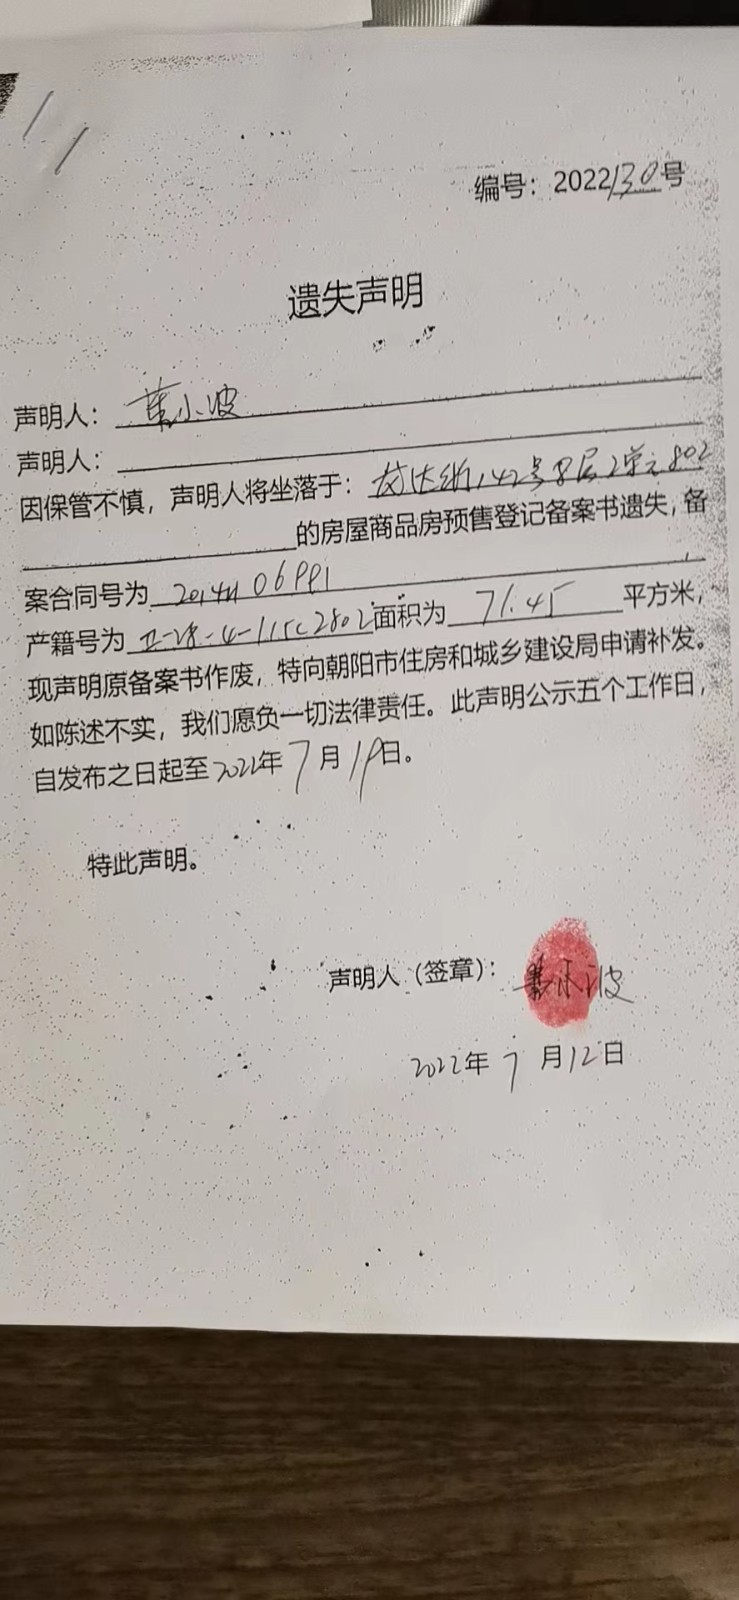 编号：2022130号
遗失声明
声明人：小波
声明人：
因保管不慎，声明人将坐落于：142号8层2单元802
的房屋商品房预售登记备案书遗失，备
案合同号为
产籍号为 面积为 71.45 平方米，
现声明原备案书作废，特向朝阳市住房和城乡建设局申请补发。
如陈述不实，我们愿负一切法律责任。此声明公示五个工作日，
自发布之日起至2022年7月19日。
特此声明。
声明人（签章）：小波
2022年7月12日